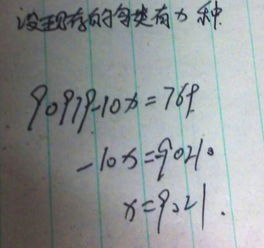 设现存的鸟类有x种
90979-10x=769
-10x=90210
x=9021.